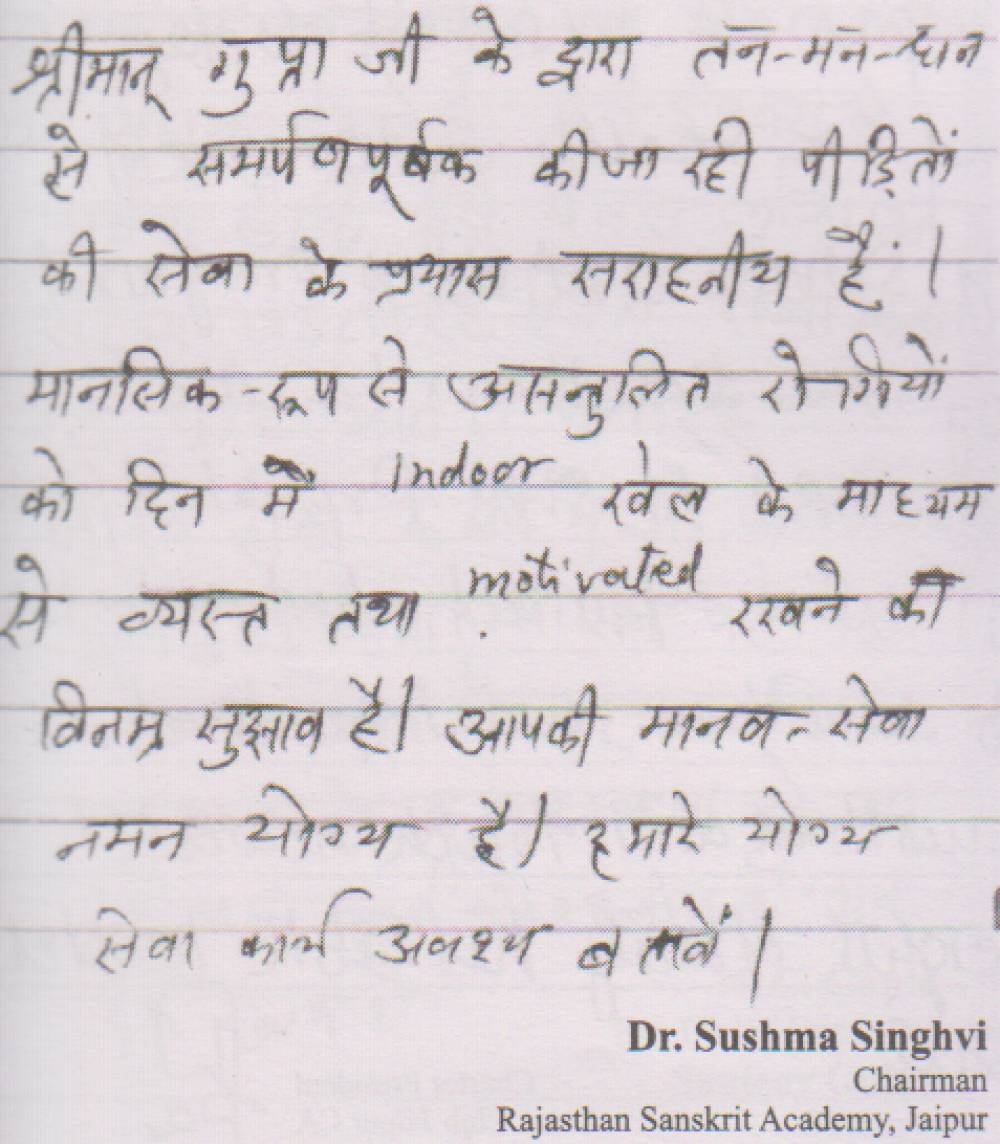 श्रीमान् गुप्ता जी के द्वारा तन-मन-धन
से समर्पण पूर्वक की जा रही पीड़ितों
की सेवा के प्रयास सराहनीय हैं।
मानसिक-रूप से असन्तुलित रोगियों
को दिन में indoor खेल के माध्यम
से व्यस्त तथा motivated रखने का
विनम्र सुझाव है। आपकी मानव-सेवा
नमन योग्य है। हमारे योग्य
सेवा कार्य अवश्य बतावें।
Dr. Sushma Singhvi
Chairman
Rajasthan Sanskrit Academy, Jaipur